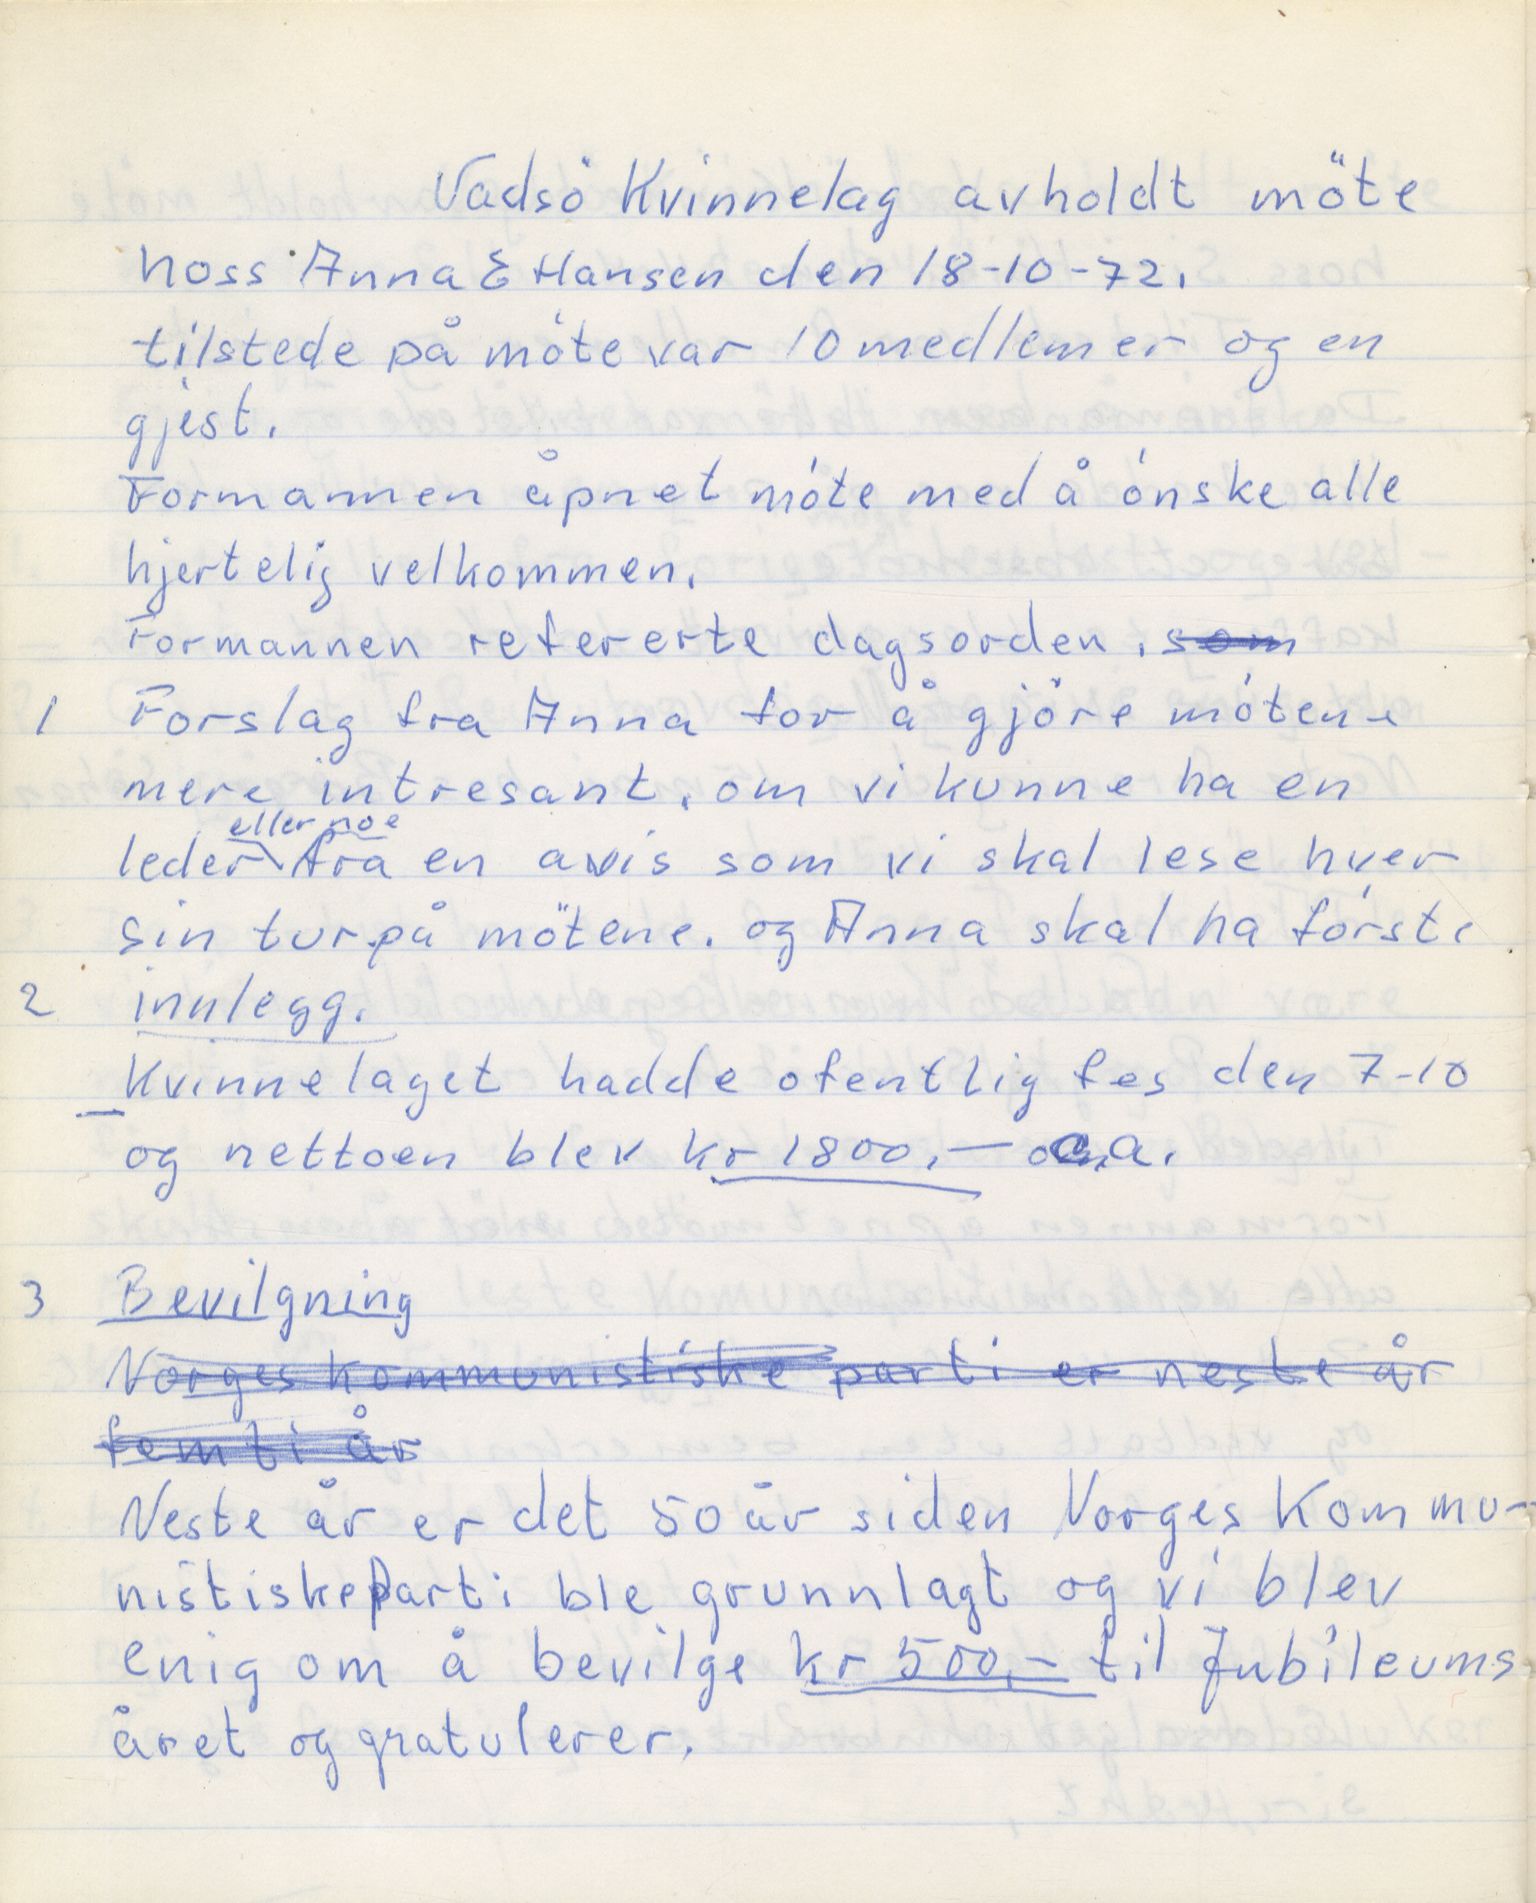 Vadsö Kvinnelag avholdt möte
hoss Anna E Hansen den 18-10-72.
tilstede på móte var 10 medlemer og en
gjest.
Formannen åpnet móte med å ónske alle
hjertelig velkommen.
Formannen refererte dagsorden. som
1 Forslag fra Anna for å gjöre mótene
mere intresant. om vi kunne ha en
eller noe
leder fra en avis som vi skal lese hver
sin tur på mötene. og Anna skal ha fórste
2 innlegg.
Kvinnelaget hadde ofentlig fes den 7-10
og nettoen blev kr 1800,- ca.
3 Bevilgning
Norges kommunistiske parti er neste år
femti år
Neste år er det 50 år siden Norges Kommu-
nistiske Parti ble grunnlagt og vi blev
enig om å bevilge kr 500,- til Jubileums
året og gratulerer.